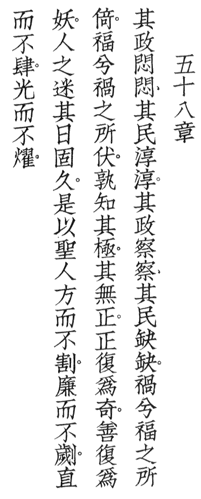 五十八章
其政悶悶、其民淳淳。其政察察、其民缺缺。禍兮福之所
倚。福兮禍之所伏。孰知其極。其無正。正復為奇。善復為
妖。人之迷其日固久。是以聖人方而不割。廉而不劌。直
而不肆。光而不燿。